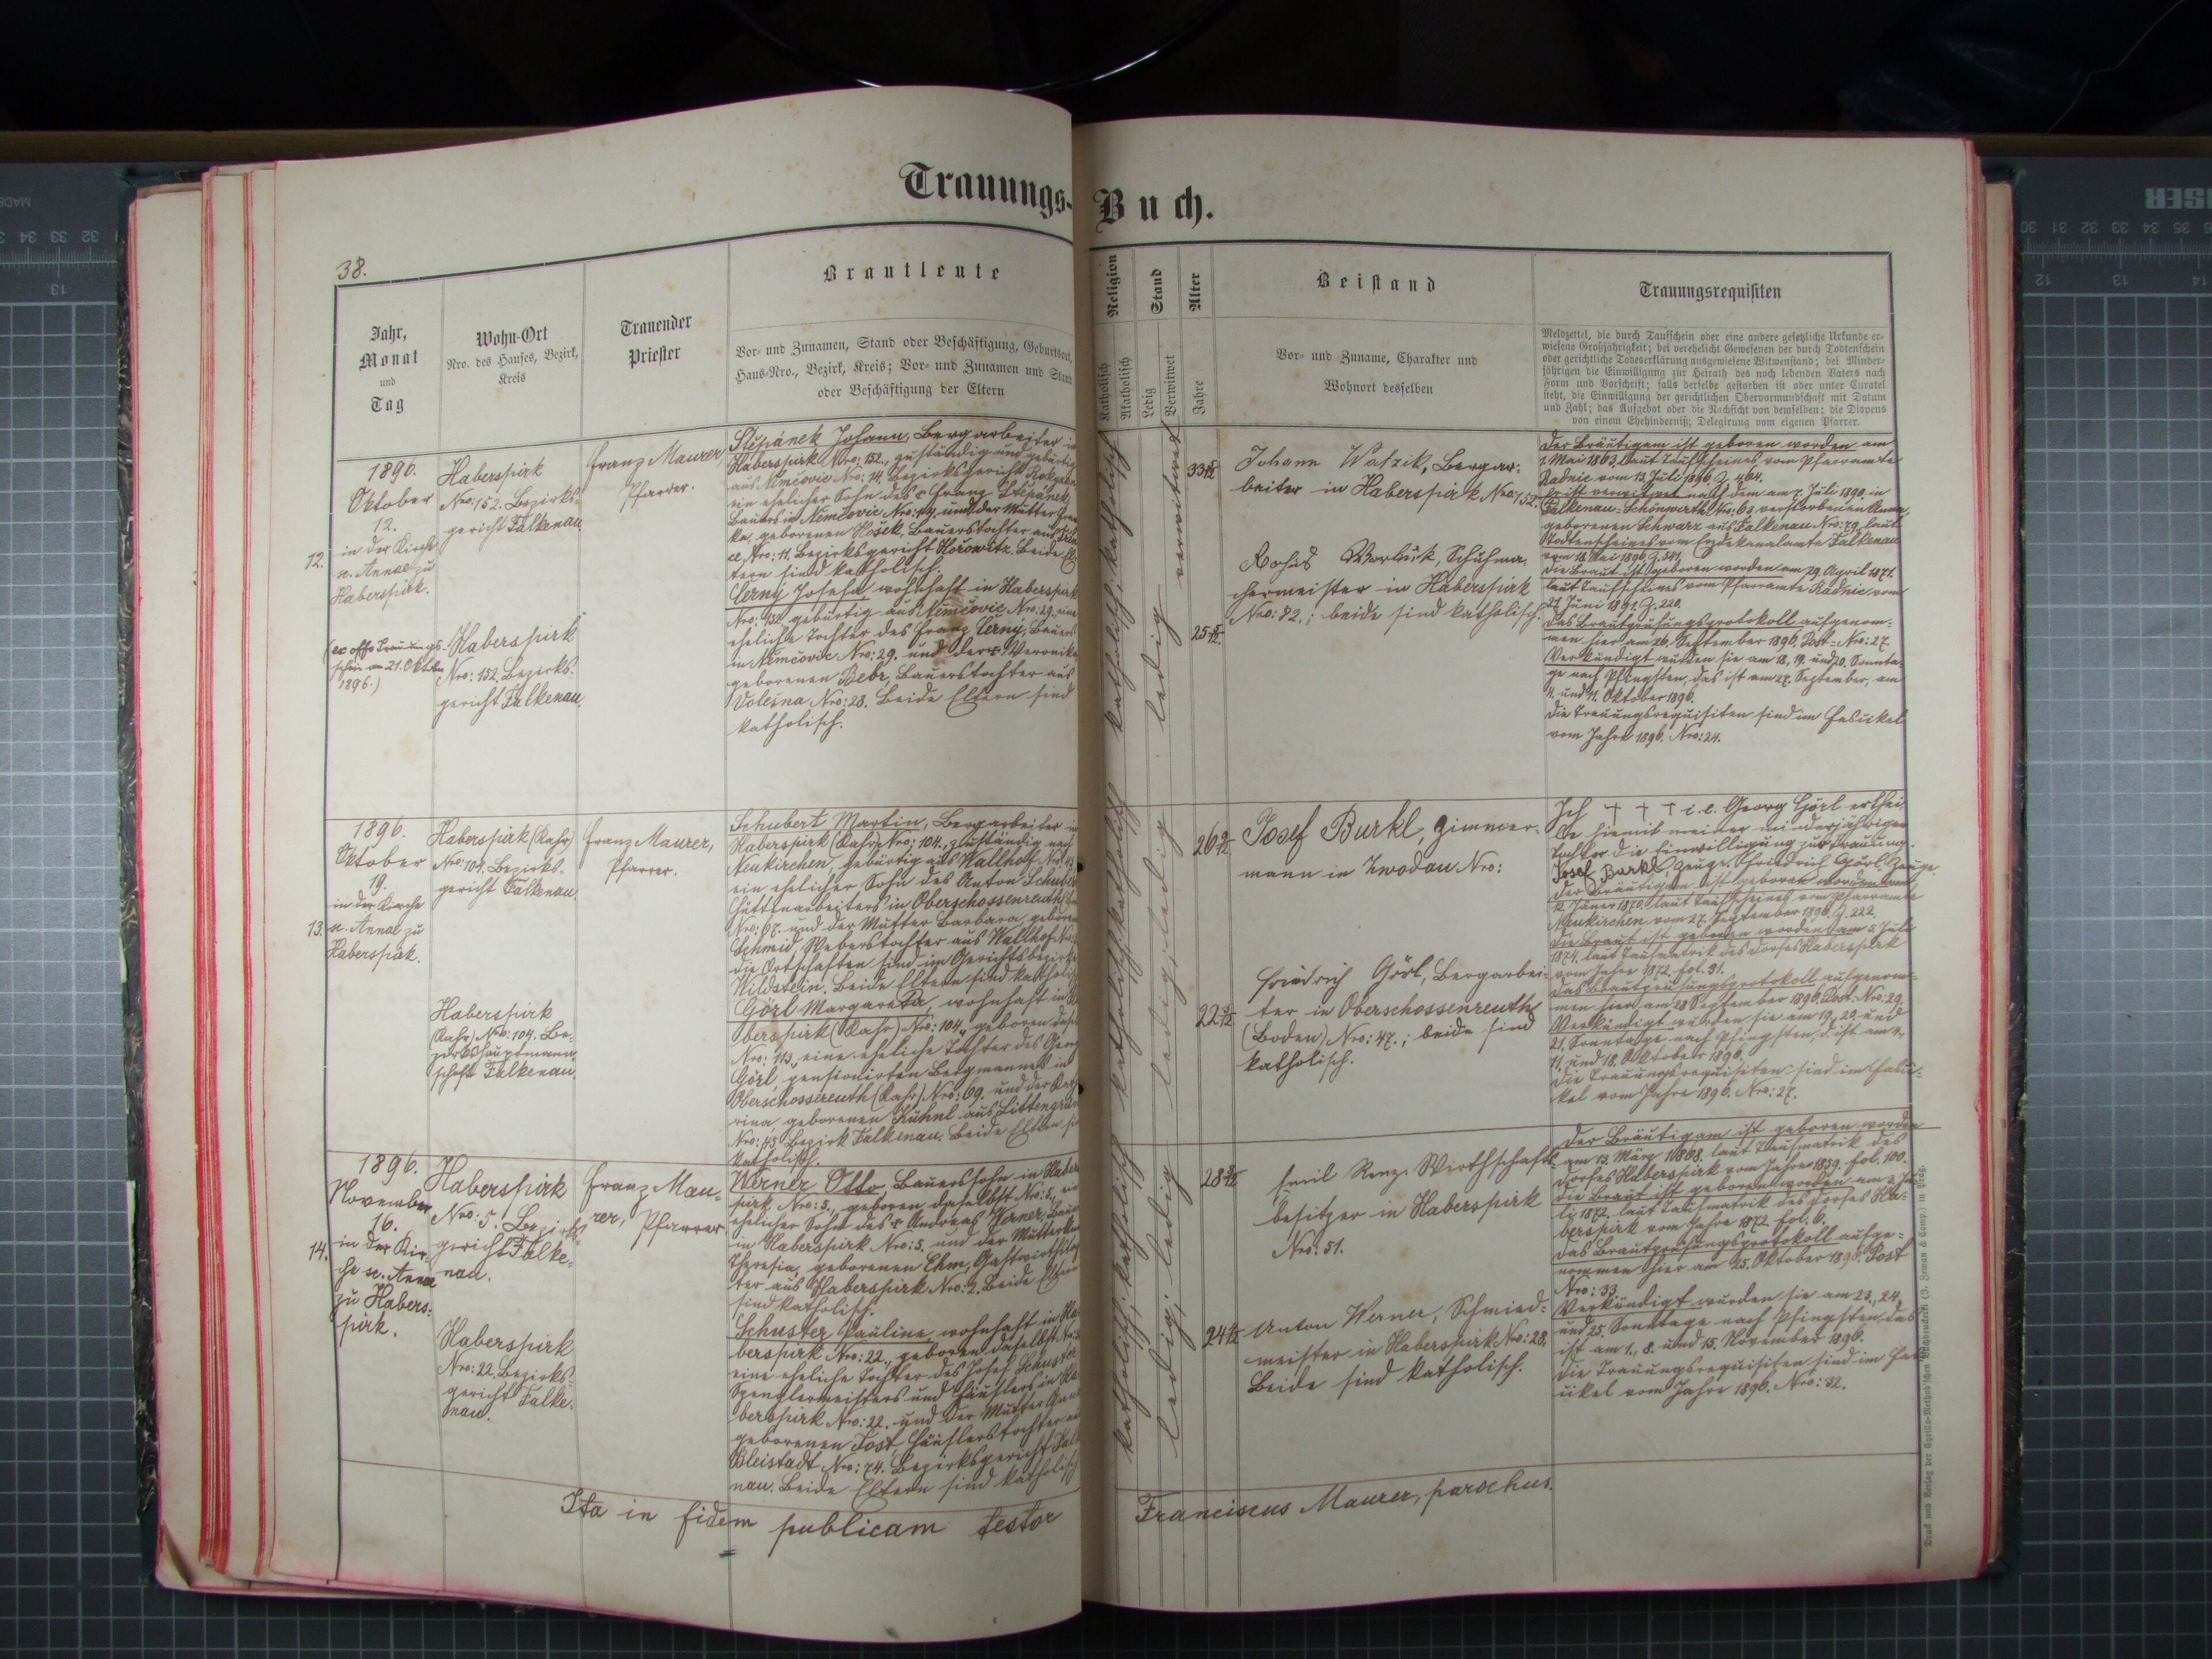 Trauungs-Buch.
38.
Jahr,
Monat
und
Tag
Wohn-Ort
Nro. des Hauses, Bezirk,
Kreis
Trauender
Priester
Brautleute
Vor- und Zunamen, Stand oder Beschäftigung, Geburtsort,
Haus-Nro., Bezirk, Kreis; Vor- und Zunamen und Stand
oder Beschäftigung der Eltern
Religion
Katholisch
Akatholisch
Stand
Ledig
Verwitwet
Alter
Jahre
Beistand
Vor- und Zuname, Charakter und
Wohnort desselben
Trauungsrequisiten
Meldzettel, die durch Taufschein oder eine andere gesetzliche Urkunde er-
wiesene Großjährigkeit; bei verehelicht Gewesenen der durch Todtenschein
oder gerichtliche Todeserklärung ausgewiesene Witwenstand; bei Minder-
jährigen die Einwilligung zur Heirath des noch lebenden Vaters nach
Form und Vorschrift; falls derselbe gestorben ist oder unter Curatel
steht, die Einwilligung der gerichtlichen Obervormundschaft mit Datum
und Zahl; das Aufgebot oder die Nachsicht von demselben; die Dispens
von einem Ehehinderniß; Delegirung vom eigenen Pfarrer.
12.
1896.
Oktober
12.
in der Kirche
sc. Annae zu
Haberspirk.
(ex offo Trauungs-
schein am 21. Oktober
1896.)
Haberspirk
Nro: 152. Bezirks-
gericht Falkenau.
Haberspirk
Nro: 152. Bezirks-
gericht Falkenau.
Franz Maurer,
Pfarrer.
Štěpánek Johann, Bergarbeiter in
Haberspirk Nro: 152., zuständig und gebürtig
aus Němčovic Nro: 14. Bezirksgericht
ein ehelicher Sohn des Franz Štěpánek,
Bauers in Němčovic Nro: 14. und der Mutter
ka, geborenen Hošek, Bauerstochter aus
Nro: 11. Bezirksgericht Hořowitz. Beide El
tern sind katholisch.
Černy Josefa, wohnhaft in Haberspirk
Nro: 152. gebürtig aus Němčovic, Nro: 29. eine
eheliche Tochter des Franz Černy, Bauers
in Němčovic Nro: 29. und der Veronika
geborenen Bebr, Bauerstochter aus
Volešna Nro: 28. Beide Eltern sind
katholisch.
katholisch; katholisch
verwitwet
ledig
33 5/12
25 5/12
Johann Watzik, Bergar-
beiter in Haberspirk Nro: 152.
Schuhma-
chermeister in Haberspirk
Nro: 82.; beide sind katholisch.
Der Bräutigam ist geboren worden am
Mai 1863, laut Taufscheines vom Pfarramte
Radnic vom 13. Juli 1896. Z. 464.
Er ist verwitwet nach dem am 7. Juli 1890. in
Falkenau-Schönwerth Nro: 68 verstorbenen Anna
geborenen Schwarz aus Falkenau Nro: 79. laut
Todtenscheines vom Erzdekanalamte Falkenau
vom 18. Mai 1896. Z. 541.
Die Braut ist geboren worden am 29. April 1871.
laut Taufscheines vom Pfarramte Radnic vom
21. Juni 1891. Z. 220.
Das Brautprüfungsprotokoll aufgenom-
men hier am 26. September 1896. Post-Nro: 27.
Verkündigt wurden sie am 18. 19. und 20. Sonnta-
ge nach Pfingsten, das ist am 27. September, am
4. und 11. Oktober 1896.
Die Trauungsrequisiten sind im Fasuikel
vom Jahre 1896. Nro: 24.
13.
1896.
Oktober
19.
in der Kirche
sc. Annae zu
Haberspirk.
Haberspirk (Kahr)
Nro: 104. Bezirks-
gericht Falkenau.
Haberspirk
(Kahr) Nro: 104. Be-
zirkshauptmann-
schaft Falkenau.
Franz Maurer,
Pfarrer.
Schubert Martin, Bergarbeiter in
Haberspirk (Kahr) Nro: 104., zuständig nach
Neukirchen, gebürtig aus Wallhof
ein ehelicher Sohn des Anton Schubert
Hüttenarbeiters in Oberschossenreuth
Nro: 67. und der Mutter Barbara, geboren
Schmid, Weberstochter aus Wallhof
die Ortschaften sind im Gerichtsbezirke
Wildstein. Beide Eltern sind katholisch
Görl Margareta, wohnhaft in Ha
berspirk (Kahr) Nro: 104., geboren
Nro: 113. eine eheliche Tochter des Georg
Görl pensionirten Bergmannes in
Oberschossereuth (Kahr) Nro: 69. und der Kath
rina geborenen Kühnl aus Littengrün
Nro: 45. Bezirk Falkenau. Beide Eltern si
katholisch.
katholisch; katholisch
ledig; ledig
26 9/12
22 3/12
Josef Burkl, Zimmer-
mann in Zwodau Nro:
Friedrich Görl, Bergarbei-
ter in Oberschossenreuth
(Boden) Nro: 47.; beide sind
katholisch.
Ich + + + i. e. Georg Görl erthei-
le hiemit meiner minderjährigen
Tochter die Einwilligung zur Trauung.
Josef Burkl, Zeuge. Friedrich Görl Zeuge
Der Bräutigam ist geboren worden am
12. Jänner 1870. laut Taufscheines vom Pfarramte
Neukirchen vom 27. September 1896. Z. 222.
Die Braut ist geboren worden am 5. Juli
1874. laut Taufmatrik des Dorfes Haberspirk
vom Jahre 1872. fol. 31.
Das Brautprüfungsprotokoll aufgenom-
men hier am 28. September 1896. Post-Nro: 29.
Verkündigt wurden sie am 19. 20. und
21. Sonntage nach Pfingsten, d. ist am 4.
11. und 18. Oktober 1896.
Die Trauungsrequisiten sind im Fasui-
kel vom Jahre 1896. Nro: 27.
14.
1896.
November
16.
in der Kir-
che sc. Annae
zu Habers-
pirk.
Haberspirk
Nro: 5. Bezirks-
gericht Falke-
nau.
Haberspirk
Nro: 22. Bezirks-
gericht Falke-
nau.
Franz Mau-
rer, Pfarrer.
Werner Otto, Bauerssohn in Habers
pirk Nro: 5., geboren daselbst Nro: 5., ein
ehelicher Sohn des Andreas Werner, Bauers
in Haberspirk Nro: 5. und der Mutter
Theresia, geborenen Ehm, Gastwirthstoch
ter aus Haberspirk Nro: 2. Beide Eltern
sind katholisch.
Schuster Pauline, wohnhaft in Ha
berspirk Nro: 22., geboren daselbst
eine eheliche Tochter des Josef Schuster
Spenglermeisters und Häuslers in Ha
berspirk Nro: 22. und der Mutter
geborenen Tost, Häuslerstochter aus
Bleistadt Nro: 74. Bezirksgericht Falke
nau. Beide Eltern sind katholisch
katholisch; katholisch
ledig; ledig
28 8/12
24 4/12
Emil Renz, Wirthschafts-
besitzer in Haberspirk
Nro: 51.
Anton Werner, Schmied-
meister in Haberspirk Nro: 28.
Beide sind katholisch.
Der Bräutigam ist geboren worden
am 13. März 1868. laut Taufmatrik des
Dorfes Haberspirk vom Jahre 1839. fol. 100.
Die Braut ist geboren worden am 3. Ju-
li 1872. laut Taufmatrik des Dorfes Ha-
berspirk vom Jahre 1872 fol. 6.
Das Brautprüfungsprotokoll aufge-
nommen hier am 25. Oktober 1896. Post
Nro: 33.
Verkündigt wurden sie am 23., 24.
und 25. Sonntage nach Pfingsten, das
ist am 1., 8. und 15. November 1896.
Die Trauungsrequisiten sind im Fas
uikel vom Jahre 1896. Nro: 32.
Ita in fidem publicam testor Franciscus Maurer, parochus.
Druck und Verlag der Cyrillo-Method'schen Buchdruckerei (J. Zeman & Comp.) in Prag.